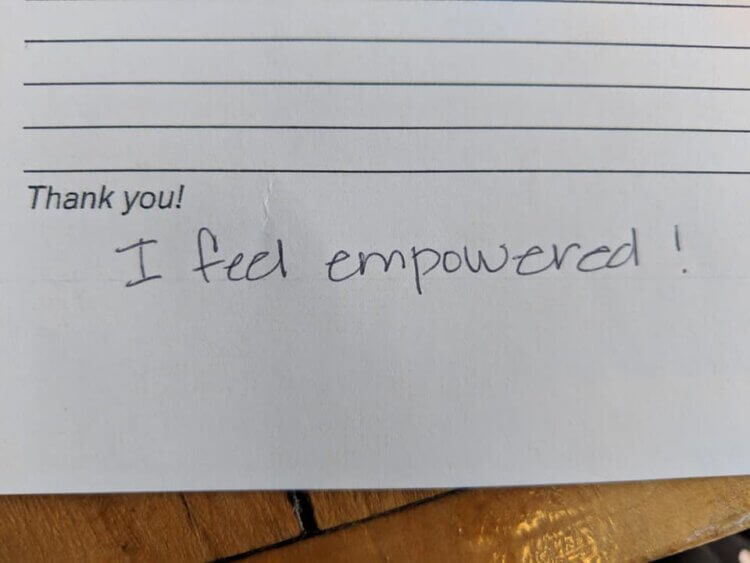 Thank you!
I feel empowered!